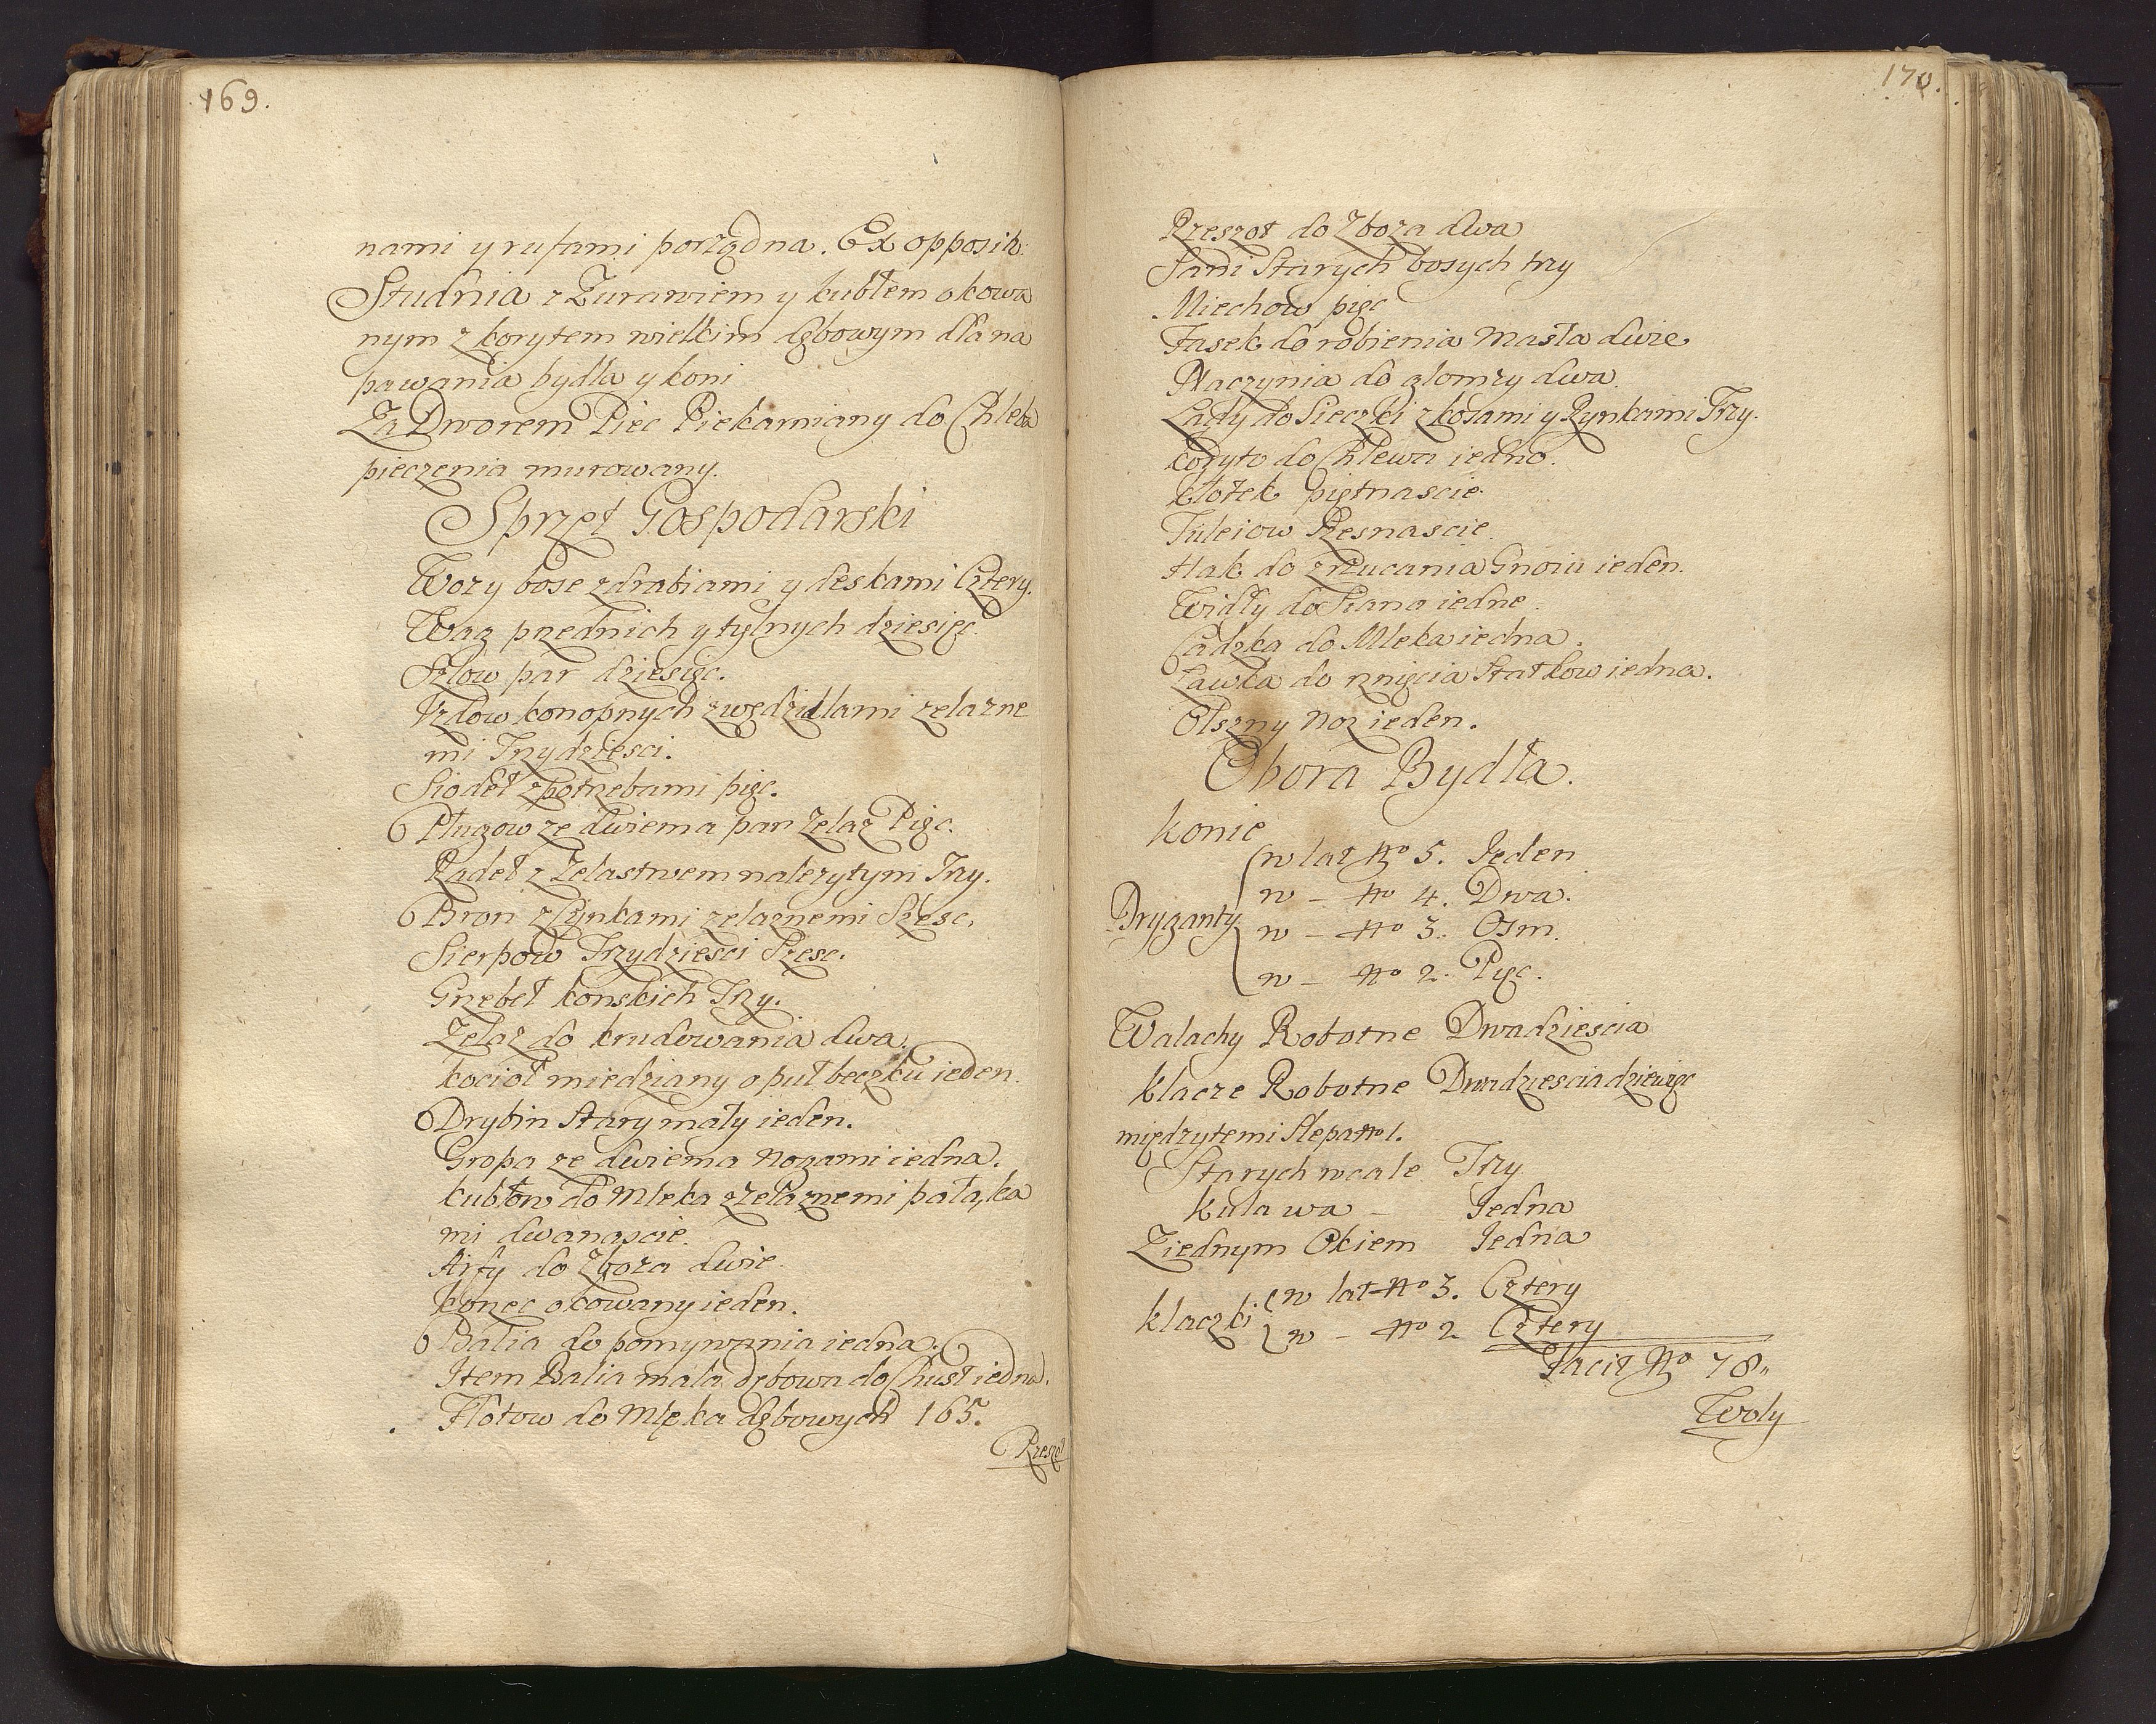 169.
nami y rufami porządna. Ex opposito
Studnia z Zurawiem y kubłem okowa
nym z korytem wielkim dębowym dla na
pawania bydła y koni
Za Dworem Piec Piekarniany do Chleba
pieczenia murowany.
Sprzęt Gospodarski
Wozy bose z drabiami y deskami Cztery.
Wag przednich y tylnych dziesięc.
Szlow par dziesięc.
Uzdow konopnych z wędzidlami zelazne
mi Trzydziesci.
Siodeł z potrzebami pięc.
Pługow ze dwiema par Zelaz Pięc.
Radeł z Zelastwem nalezytym Trzy.
Bron z Rynkami zelaznemi Szesc.
Sierpow Trzydziesci Szesc.
Grzebeł konskich Trzy.
Zelaz do krudowania dwa.
kocioł miedziany o puł beczku ieden.
Drybin Stary mały ieden.
Gropa ze dwiema Nogami iedna.
kubłow do Mleka z zelaznemi pałąka
mi dwanascie.
Arfy do Zboza dwie.
korzec okowany ieden.
Balia do pomywania iedna.
Item Balia mala dębowa do Chust iedna.
Flotow do Mleka dębowych 165.
Rzeszot
170.
Rzeszot do Zboza dwa
Sani Starych bosych trzy
Miechow pięc
Fasek do robienia Masła dwie
Naczynia do głomzy dwa.
Lady do Sieczki z kosami y Rynkami Trzy.
koryto do Chlewa iedno.
kłotek piętnascie.
Tuleiow Szesnascie.
Hak do zrzucania Gnoiu ieden.
Widły do Siana iedne.
Cadzka do Mleka iedna.
Ławka do rznięcia Statkow iedna.
Olszny Noz ieden.
Obora Bydła.
konie
w lat No 5. Jeden
w – No 4. Dwa.
Dryganty
w – No 3. Osm.
w – No 2. Pięc.
Walachy Robotne Dwadziescia
klacze Robotne Dwadziescia dziewięc
między temi Slepa No 1.
Starych wcale Trzy
kulawa – Jedna
Z iednym Okiem Jedna
klaczki
w lat No 3. Cztery
w – No 2 Cztery
Facit No 78
Woły